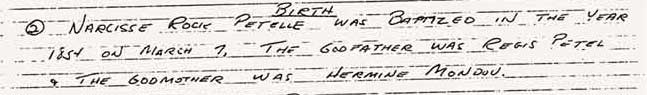 BIRTH
② NARCISSE ROCK PETELLE WAS BAPTIZED IN THE YEAR
1854 ON MARCH 7, THE GODFATHER WAS REGIS PETEL
& THE GODMOTHER WAS HERMINE MONDOU.